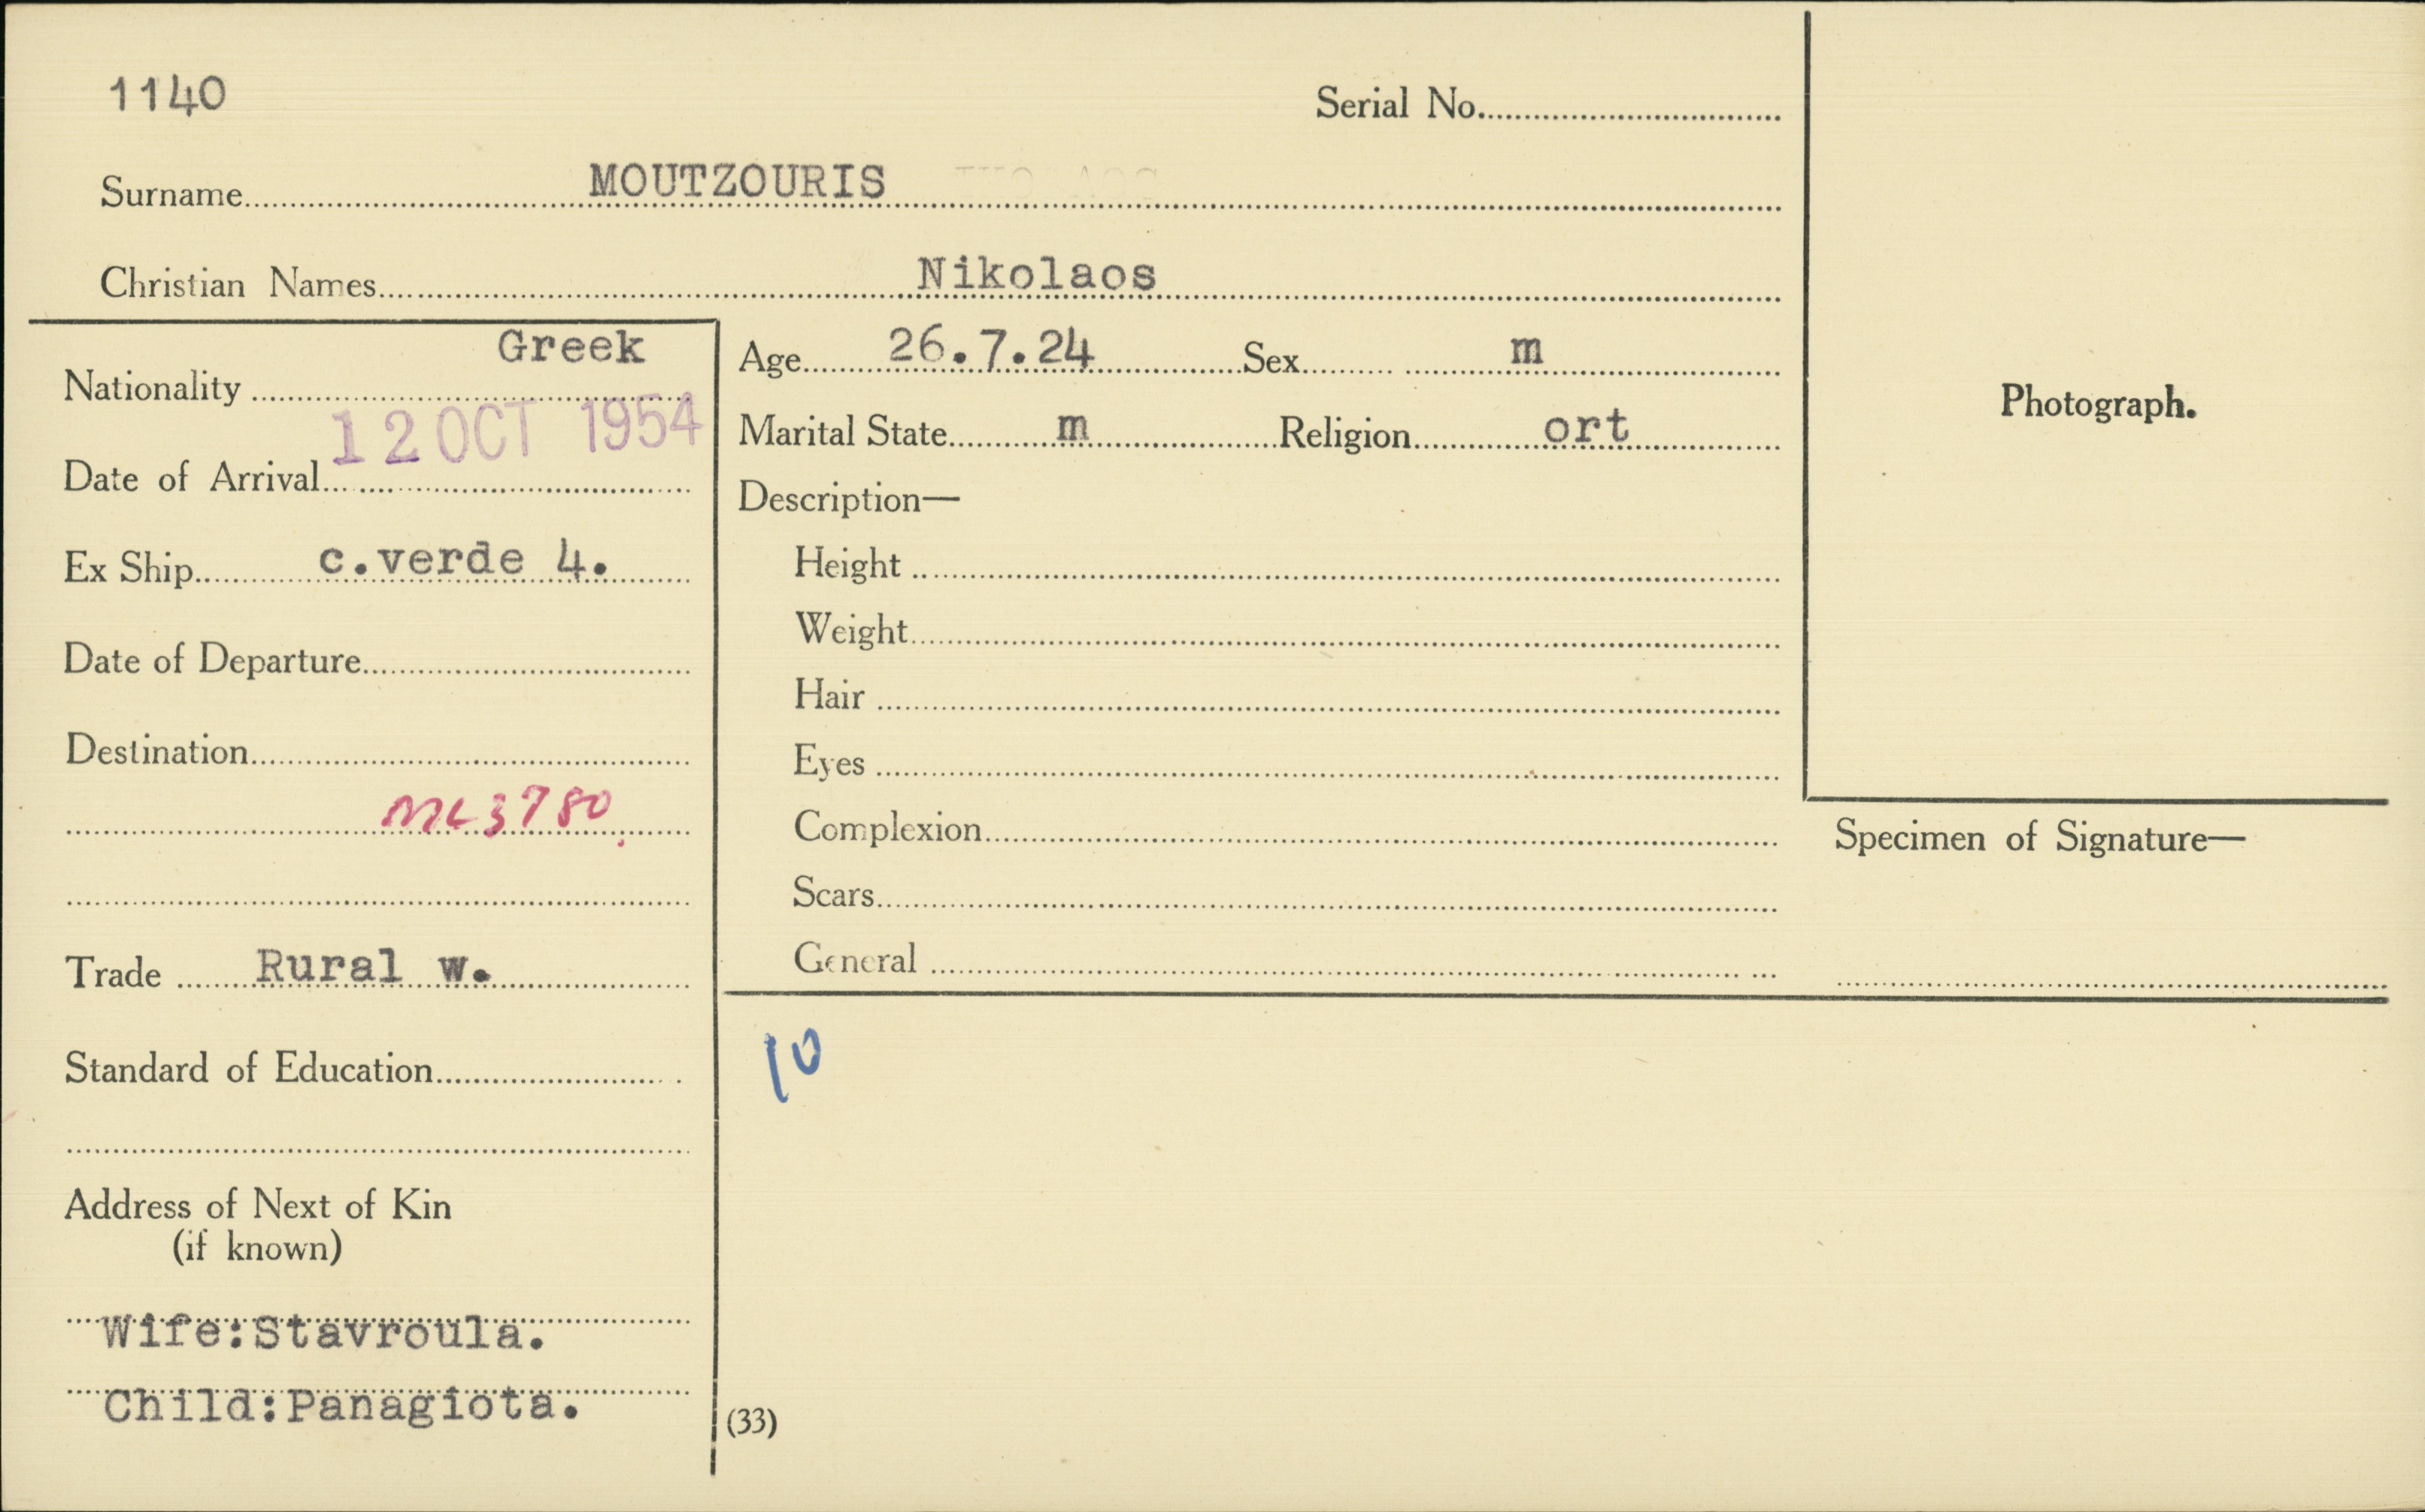 1140
Serial No.
Surname MOUTZOURIS
Christian Names Nikolaos
Nationality Greek
Date of Arrival 12 OCT 1954
Ex Ship c.verde 4.
Date of Departure
Destination
ML3780
Trade Rural w.
Standard of Education
Address of Next of Kin
(if known)
Wife:Stavroula.
Child:Panagiota.
Age 26.7.24 Sex m
Marital State m Religion ort
Description—
Height
Weight
Hair
Eyes
Complexion
Scars
General
10
(33)
Photograph.
Specimen of Signature—